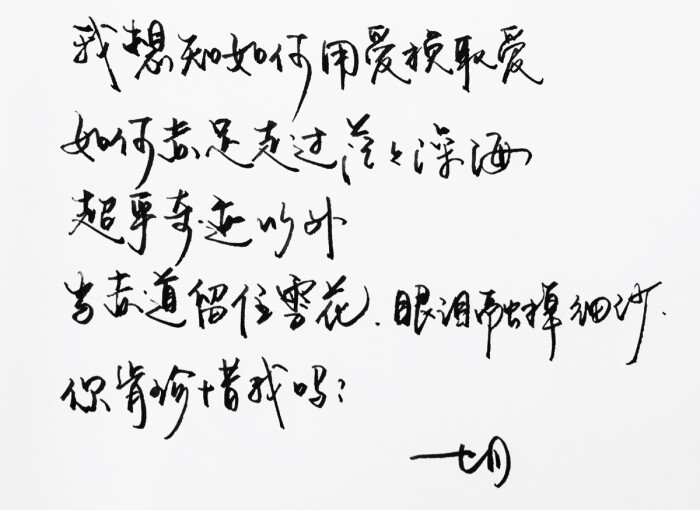 我想知如何用爱换取爱
如何赤足走过茫々深海
超乎奇迹以外
当赤道留住雪花、眼泪融掉细沙.
你肯珍惜我吗？
七月